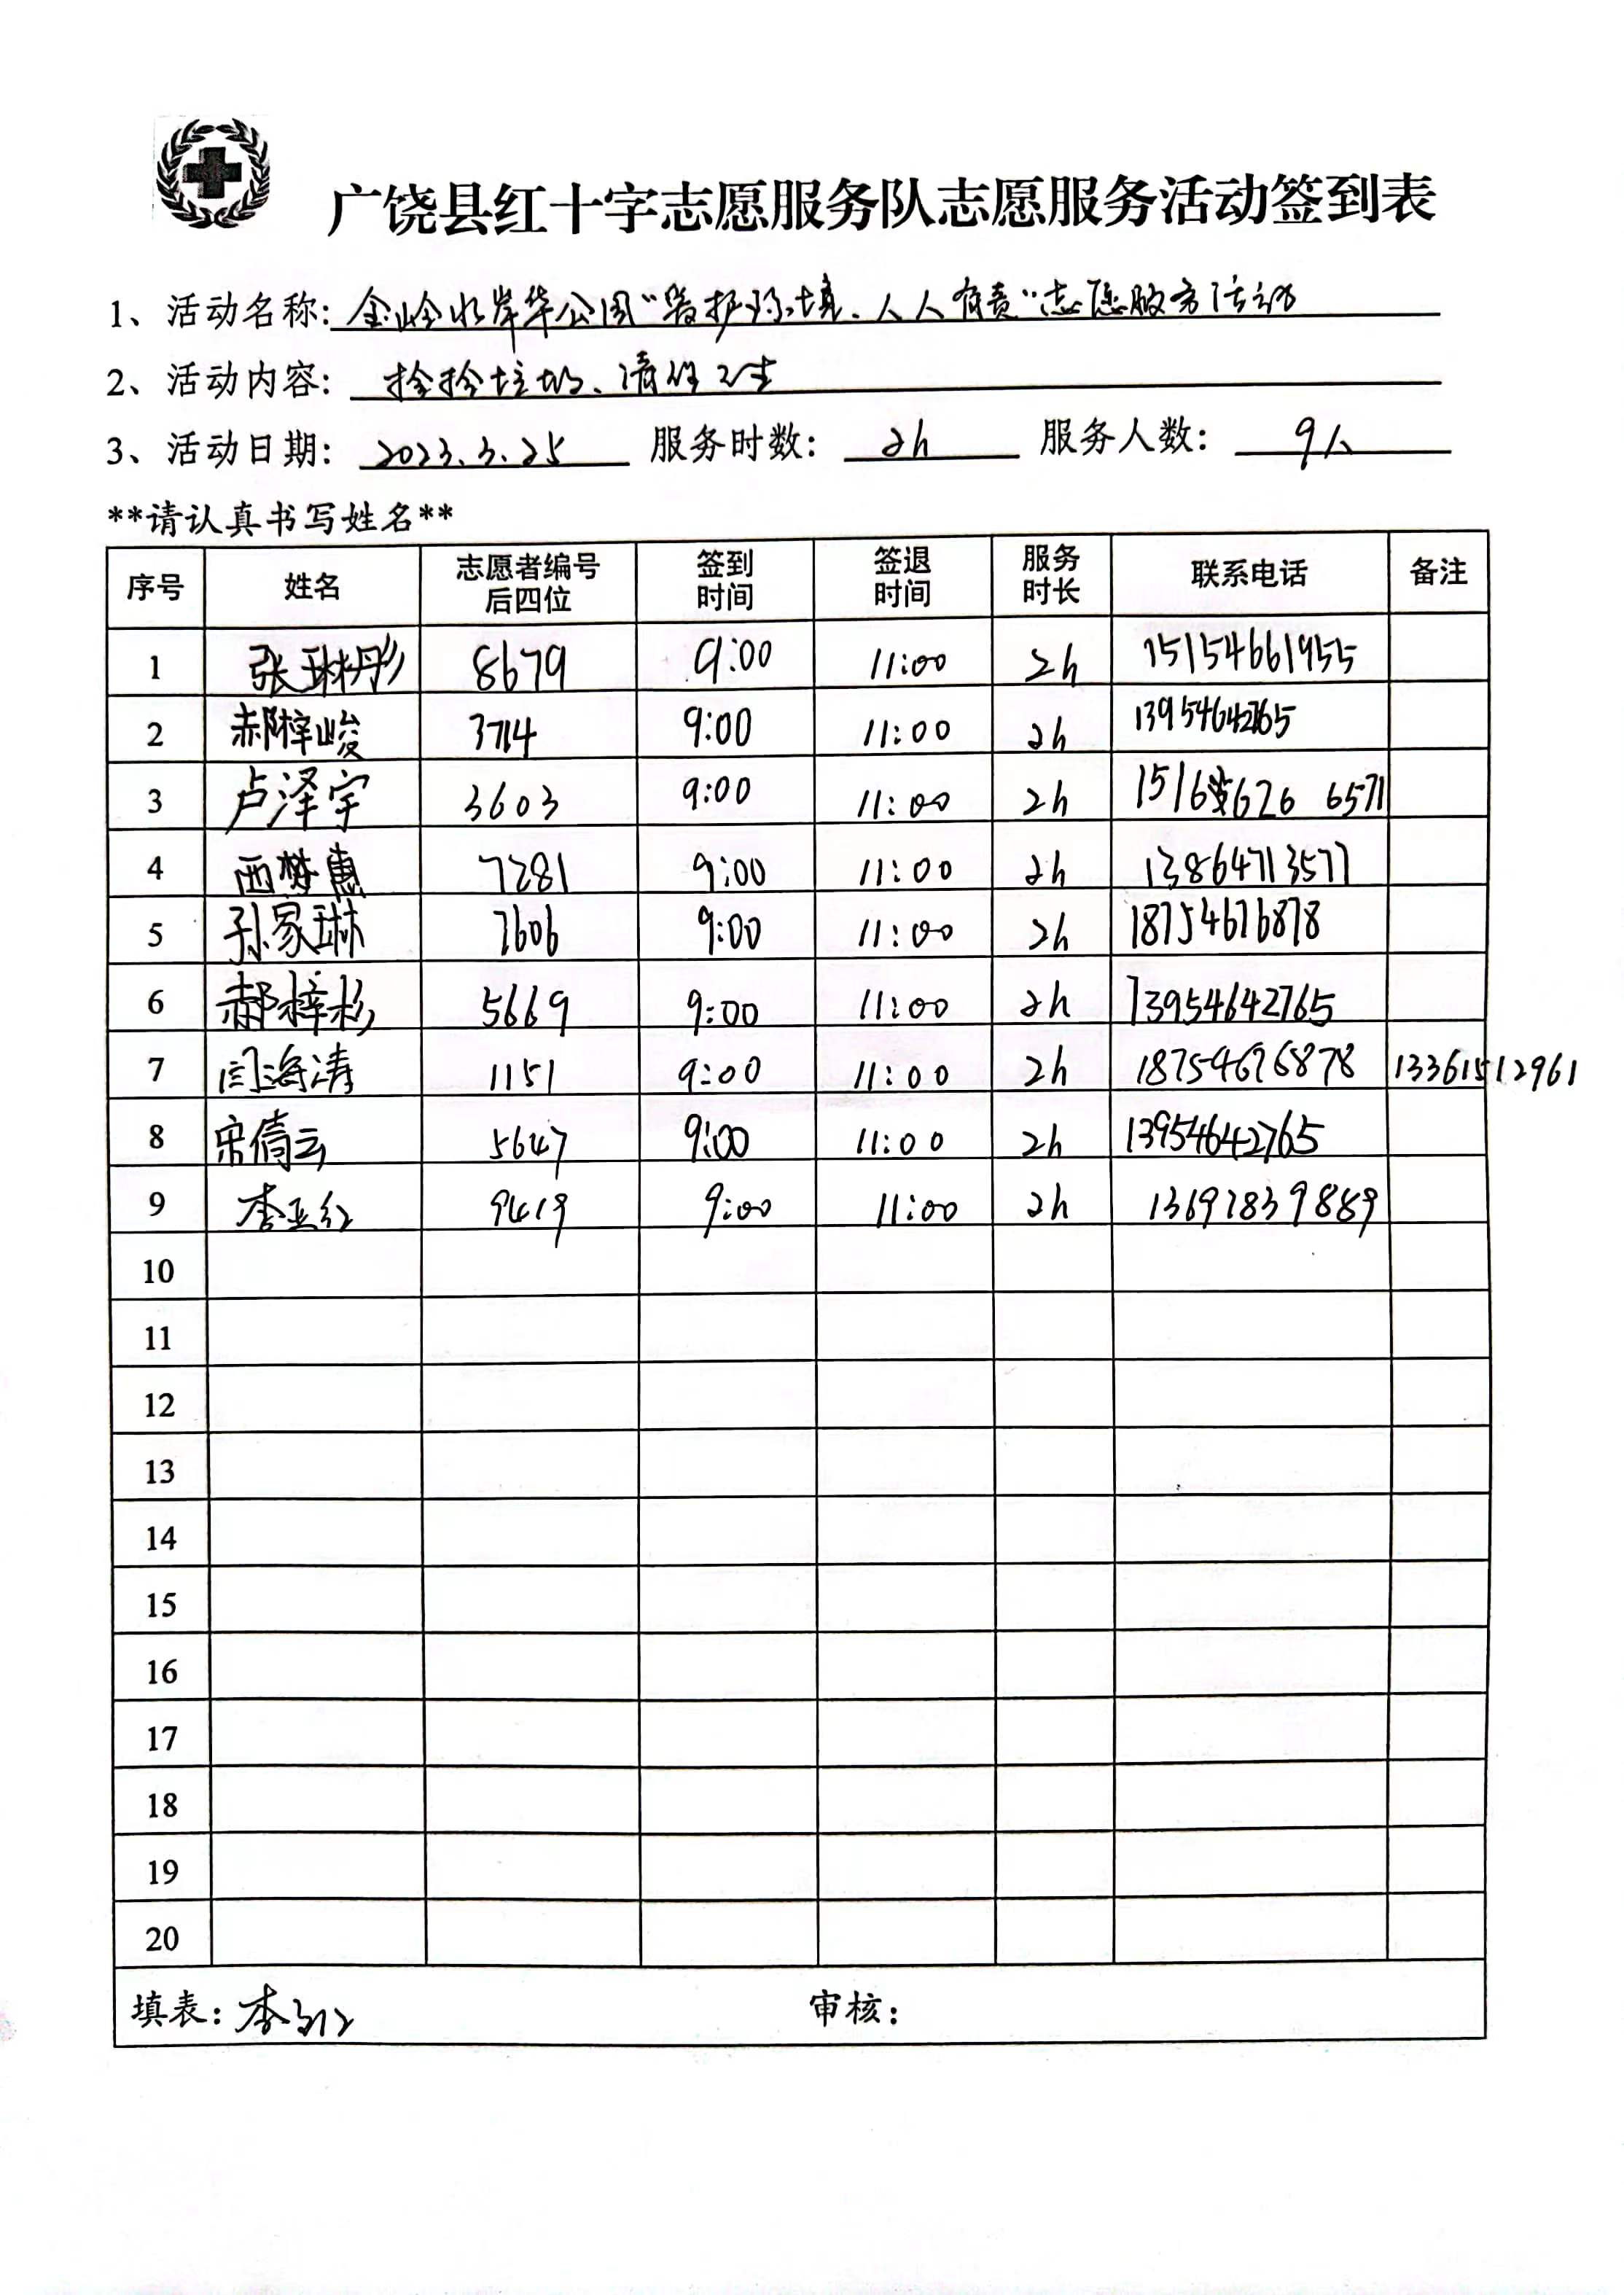 广饶县红十字志愿服务队志愿服务活动签到表
1、活动名称: 金岭水岸华公园“爱护环境、人人有责”志愿服务活动
2、活动内容: 拾捡垃圾、清理卫生
3、活动日期: 2023.3.25 服务时数: 2h 服务人数: 9人
**请认真书写姓名**
序号 姓名 志愿者编号后四位 签到时间 签退时间 服务时长 联系电话 备注
1 张琳彤 8679 9:00 11:00 2h 15154661955
2 郝梓峻 3714 9:00 11:00 2h 13954642765
3 卢泽宇 3603 9:00 11:00 2h 1516 626 6571
4 西梦惠 7281 9:00 11:00 2h 13864713577
5 孙家琳 7606 9:00 11:00 2h 18754676878
6 郝梓杉 5669 9:00 11:00 2h 13954642765
7 闫海涛 1151 9:00 11:00 2h 18754676878 13361512961
8 宋倩云 5647 9:00 11:00 2h 13954642765
9 李亚红 9419 9:00 11:00 2h 13697839889
10
11
12
13
14
15
16
17
18
19
20
填表: 李亚红 审核: